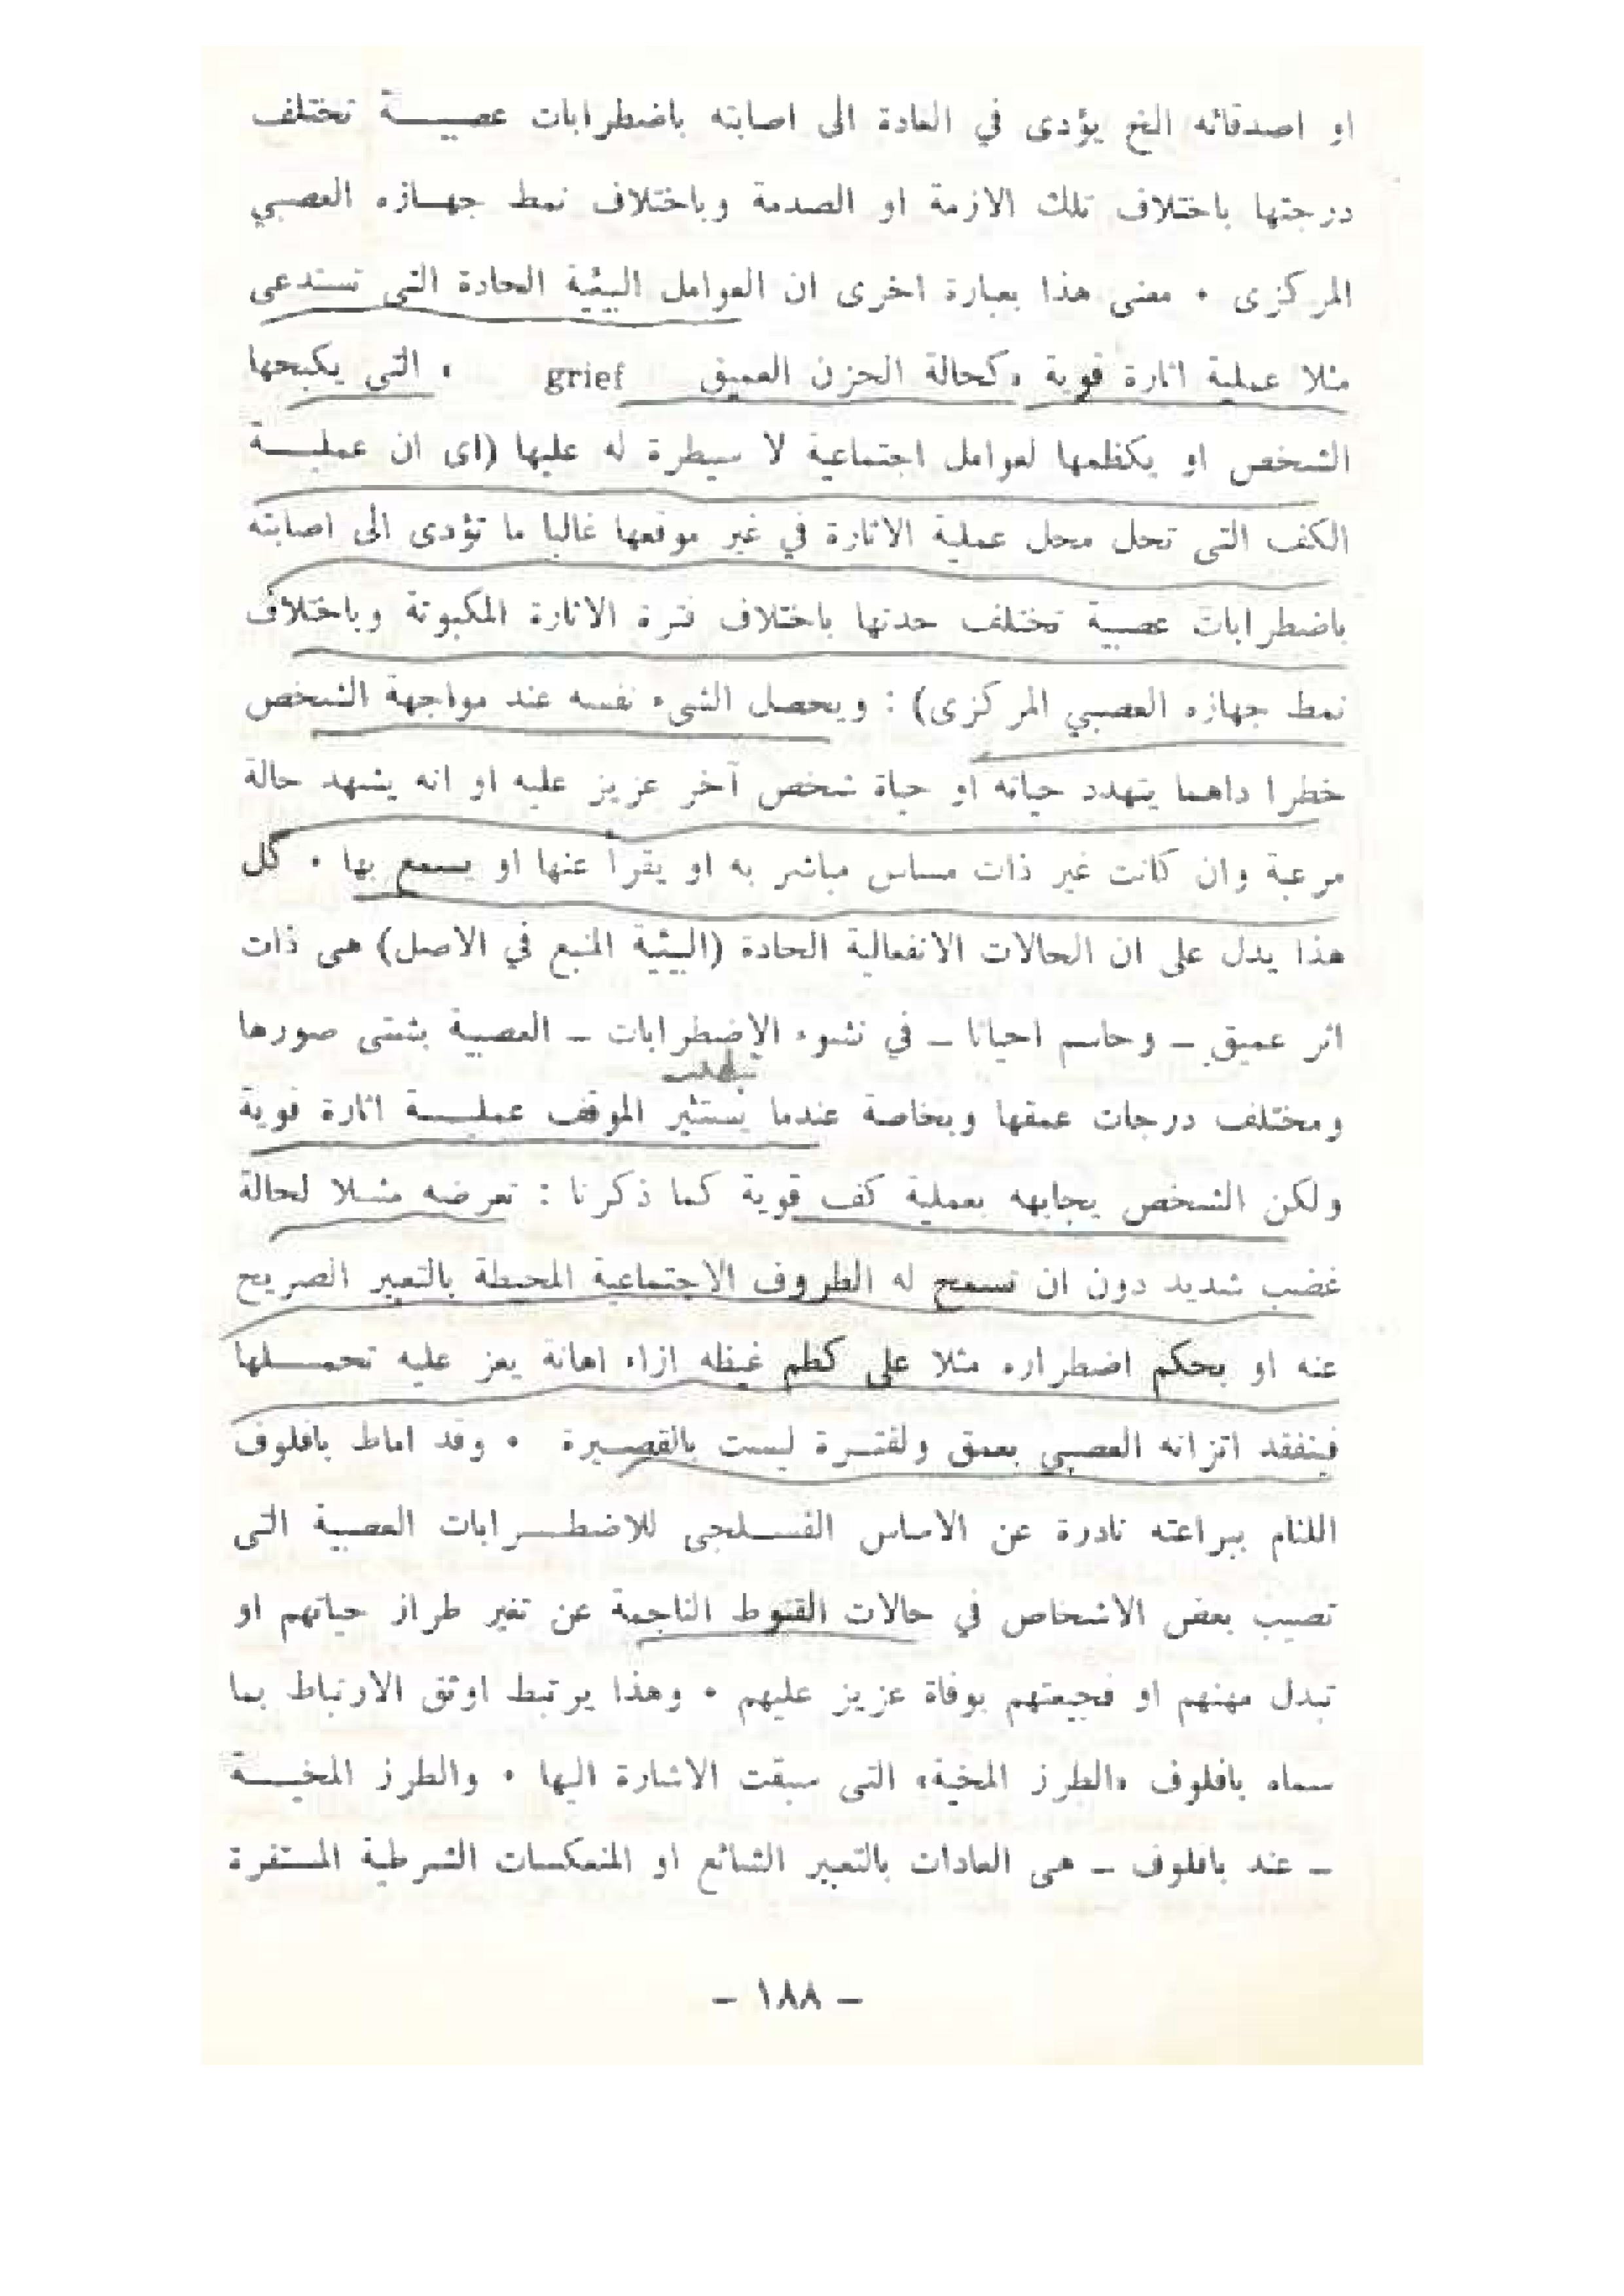 او اصدقائه الخ يؤدى في العادة الى اصابته باضطرابات عصبيـــة تختلف
درجتها باختلاف تلك الازمة او الصدمة وباختلاف نمط جهـازه العصبي
المركزى ٠ معنى هذا بعبارة اخرى ان العوامل البيئية الحادة التى تستدعى
مثلا عملية اثارة قوية «كحالة الحزن العميق grief » التى يكبحها
الشخص او يكظمها لعوامل اجتماعية لا سيطرة له عليها (اى ان عمليـــة
الكف التى تحل محل عملية الاثارة في غير موقعها غالبا ما تؤدى الى اصابته
باضطرابات عصبية تختلف حدتها باختلاف فترة الاثارة المكبوتة وباختلاف
نمط جهازه العصبي المركزى) : ويحصل الشىء نفسه عند مواجهة الشخص
خطرا داهما يتهدد حياته او حياة شخص آخر عزيز عليه او انه يشهد حالة
مرعبة وان كانت غير ذات مساس مباشر به او يقرأ عنها او يسمع بها ٠ كل
هذا يدل على ان الحالات الانفعالية الحادة (البيئية المنبع في الاصل) هى ذات
اثر عميق ـ وحاسم احيانا ـ في نشوء الاضطرابات ـ العصبية بشتى صورها
يتطلب
ومختلف درجات عمقها وبخاصة عندما يستثير الموقف عمليـــة اثارة قوية
ولكن الشخص يجابهه بعملية كف قوية كما ذكرنا : تعرضه مثـلا لحالة
غضب شديد دون ان تسمح له الظروف الاجتماعية المحيطة بالتعبير الصريح
عنه او بحكم اضطراره مثلا على كظم غيظه ازاء اهانة يعز عليه تحمـــلها
فيتفقد اتزانه العصبي بعمق ولفتـرة ليست بالقصيرة ٠ وقد اماط بافلوف
اللثام ببراعته نادرة عن الاساس الفســلجى للاضطـــرابات العصبية التى
تصيب بعض الاشخاص في حالات القنوط الناجمة عن تغير طراز حياتهم او
تبدل مهنهم او فجيعتهم بوفاة عزيز عليهم ٠ وهذا يرتبط اوثق الارتباط بما
سماه بافلوف «الطرز المخية» التى سبقت الاشارة اليها ٠ والطرز المخيـــة
ـ عند بافلوف ـ هى العادات بالتعبير الشائع او المنعكسات الشرطية المستقرة
ـ ١٨٨ ـ